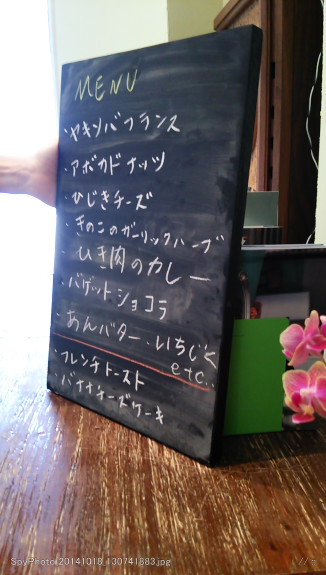 MENU
・ヤキソバフランス
・アボカドナッツ
・ひじきチーズ
・きのこのガーリックハーブ
・ひき肉のカレー
・バゲットショコラ
・あんバター・いちじく
etc..
・フレンチトースト
・バナナチーズケーキ
SpyPhoto(20141018_130741883.jpg